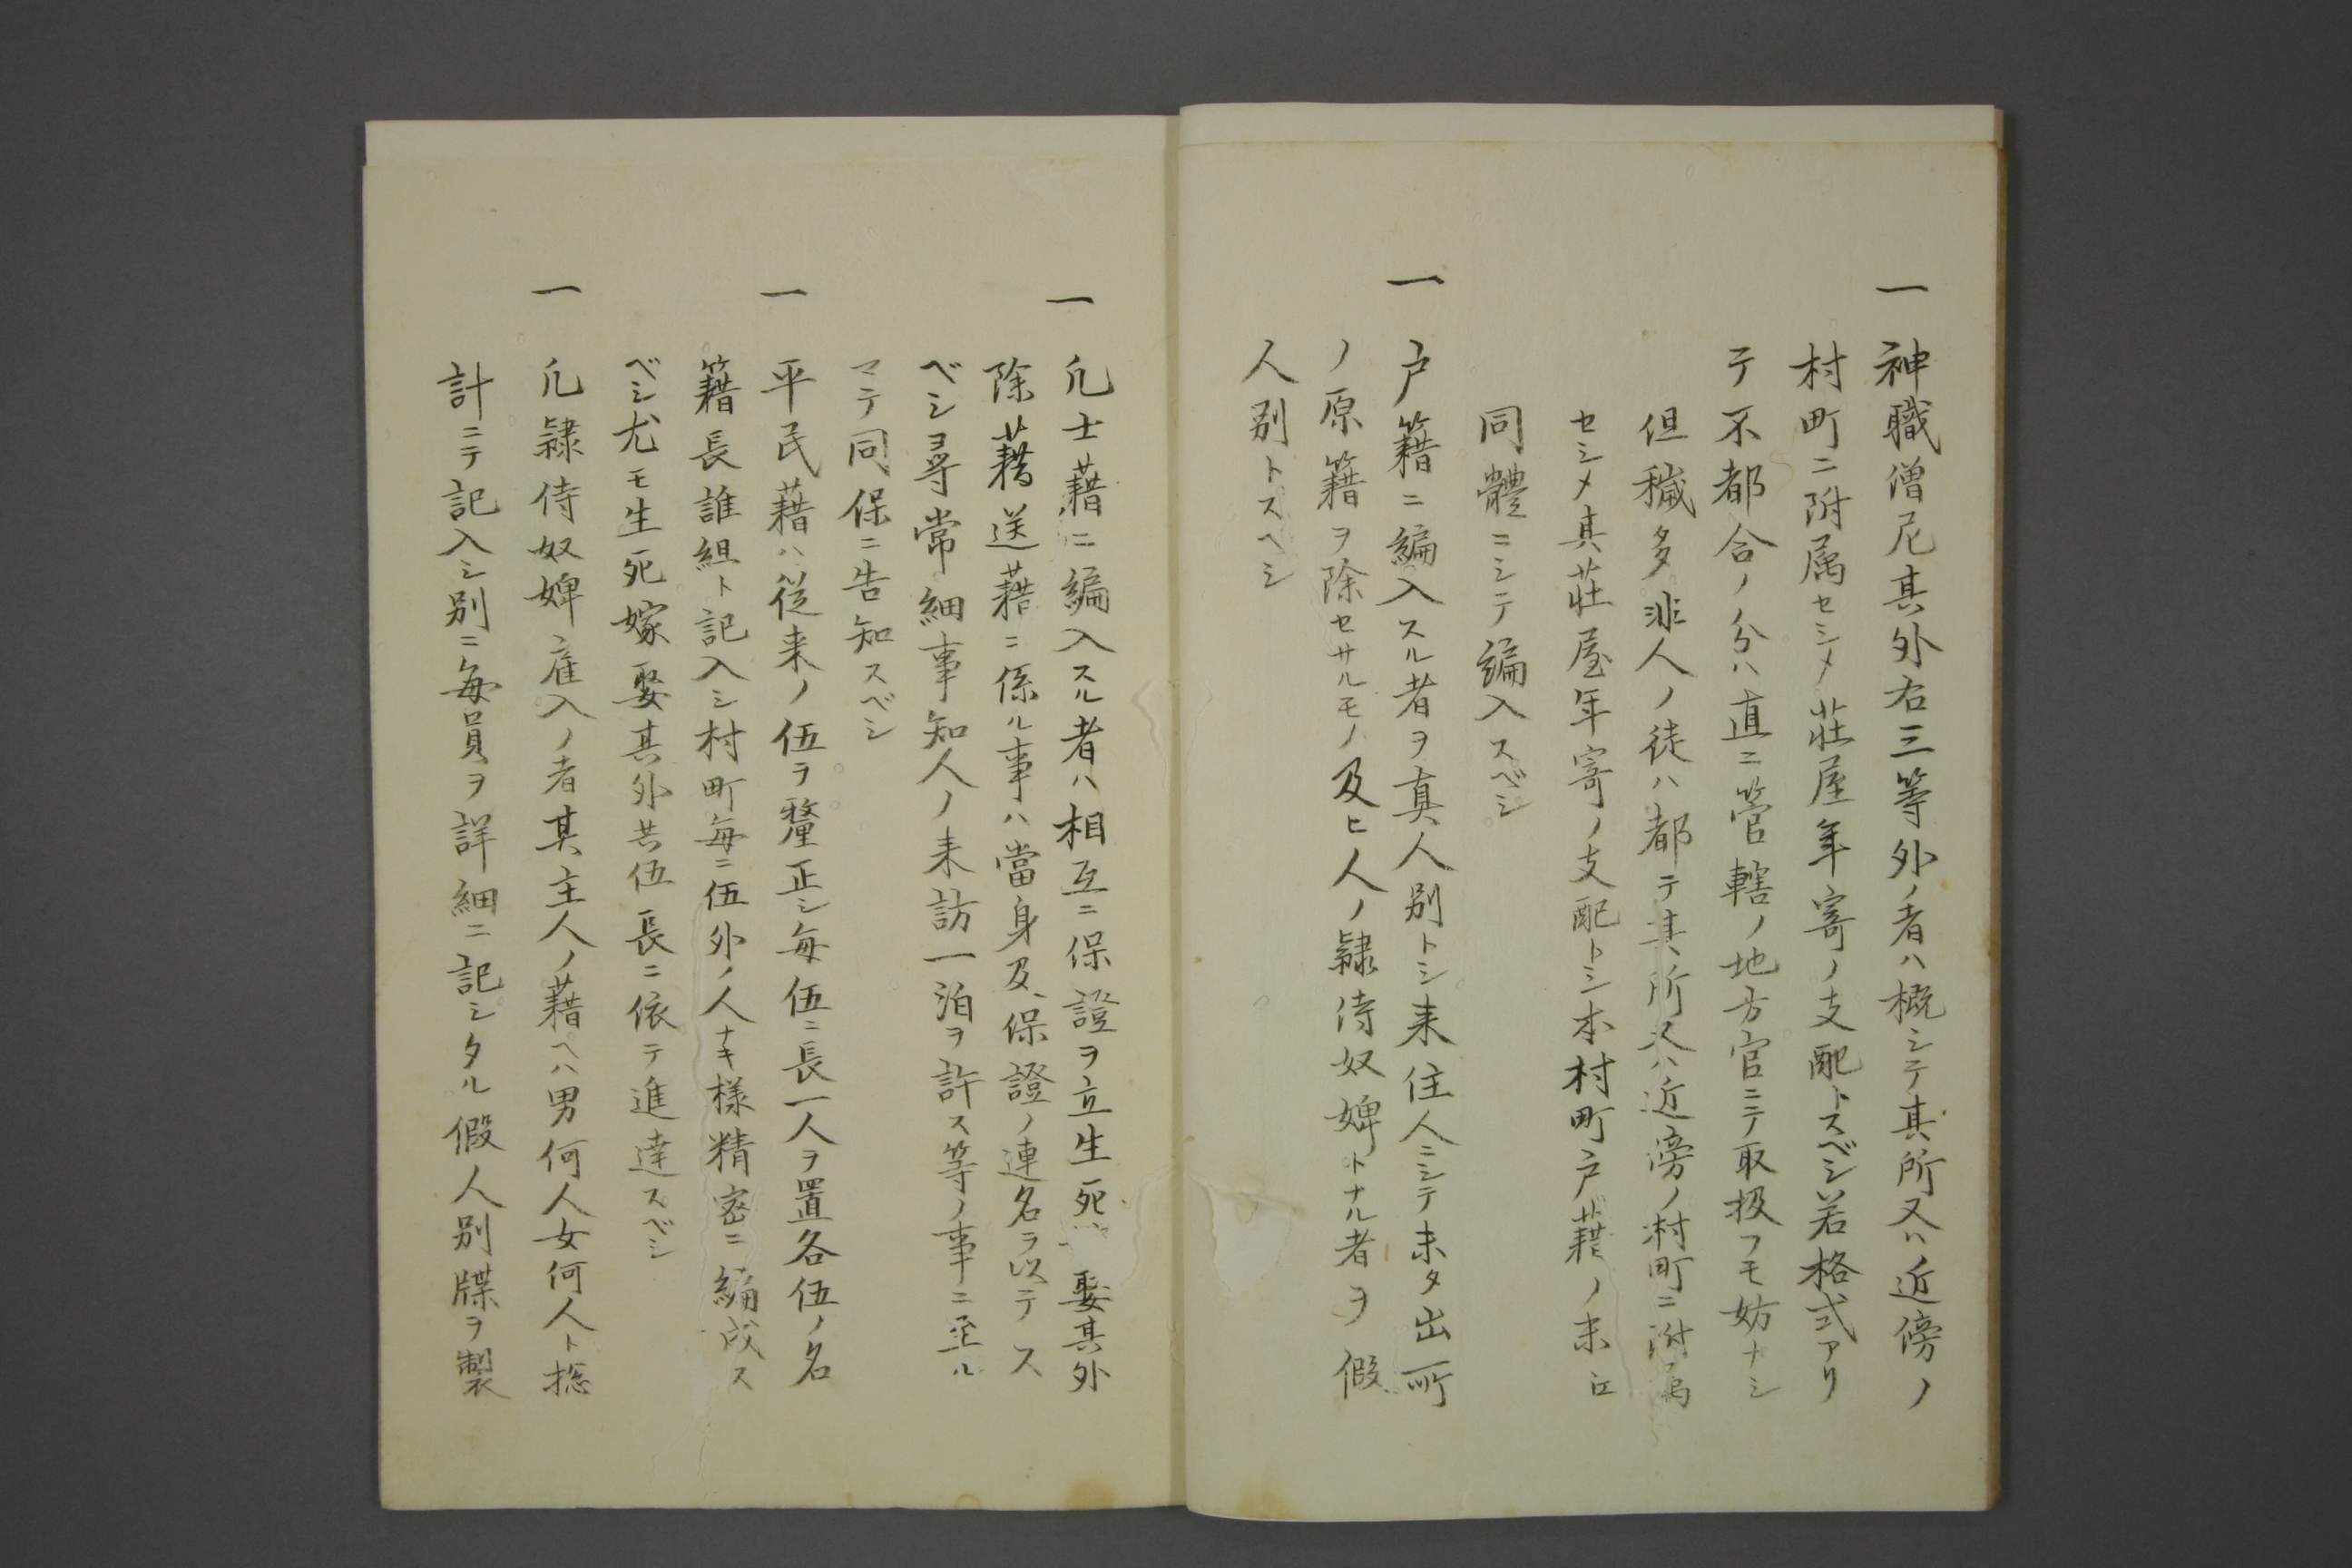 一 神職僧尼其外右三等外ノ者ハ概シテ其所又ハ近傍ノ
村町ニ附属セシメ荘屋年寄ノ支配トスベシ若格式アリ
テ不都合ノ分ハ直ニ管轄ノ地方官ニテ取扱フモ妨ナシ
但穢多非人ノ徒ハ都テ其所又ハ近傍ノ村町ニ附属
セシメ其荘屋年寄ノ支配トシ本村町戸藉ノ末江
同體ニシテ編入スベシ
一 戸籍ニ編入スル者ヲ真人別トシ来住人ニシテ未タ出所
ノ原籍ヲ除セサルモノ及ヒ人ノ隷侍奴婢トナル者ヲ假
人別トスヘシ
一 凢士藉ニ編入スル者ハ相互ニ保證ヲ立生死 娶其外
除藉送藉ニ係ル事ハ當身及保證ノ連名ヲ以テス
ベシ尋常細事知人ノ来訪一泊ヲ許ス等ノ事ニ至ル
マテ同保ニ告知スベシ
一 平民藉ハ従来ノ伍ヲ釐正シ毎伍ニ長一人ヲ置各伍ノ名
籍長誰組ト記入シ村町毎ニ伍外ノ人ナキ様精密ニ編成ス
ベシ尤モ生死嫁娶其外共伍長ニ依テ進達スベシ
一 凢隷侍奴婢雇入ノ者其主人ノ藉ヘハ男何人女何人ト捴
計ニテ記入シ別ニ毎員ヲ詳細ニ記シタル假人別牒ヲ製